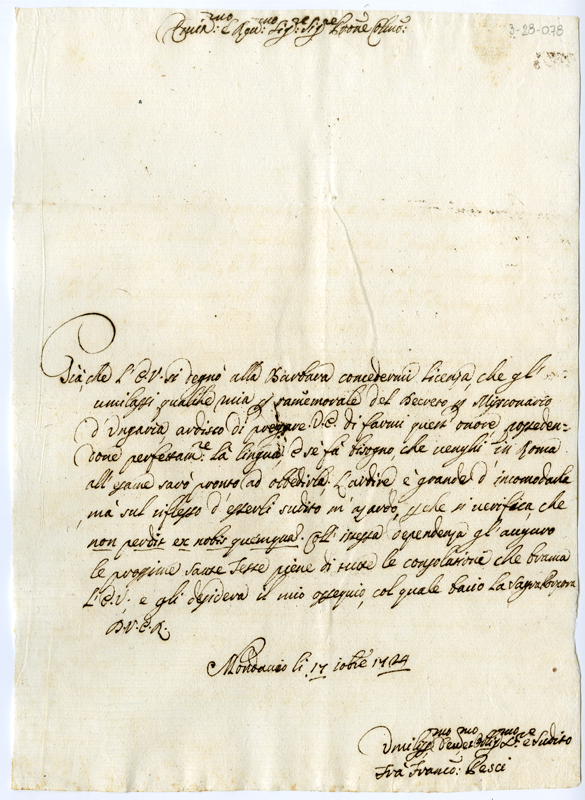 Emin:mo e Rev:mo Sig:re Sig:re Prone Colmo:
3-28-078
Già, che l'E.V. si degnò alla Barbara concedermi licenza, che gl'
umilassi qualche mia per ramemorale del Decreto per Missionario
d'Ungaria, ardisco di pregare V.E. di farmi quest'onore posseden-
done perfettam:te la lingua, e se fà bisogno, che venghi in Roma
all'esame sarò pronto ad obbedirla. L'ardire è grande d'incomodarla
mà sul riflesso d'esserli sudito in azardo, perche si verifica che
non perdit ex nobis quemquam. Coll'istessa dependenza gl'auguro
le prossime sante Feste piene di tutte le consolationi che brama
L'E.V. e gli desidera il mio ossequio, col quale bacio la Sagra Porpora
D.V.E.R.
li 17 Xbre 1724
Umiliss:mo Devot:mo Obligmo S:re e Sudito
Frà Franco: Pesci